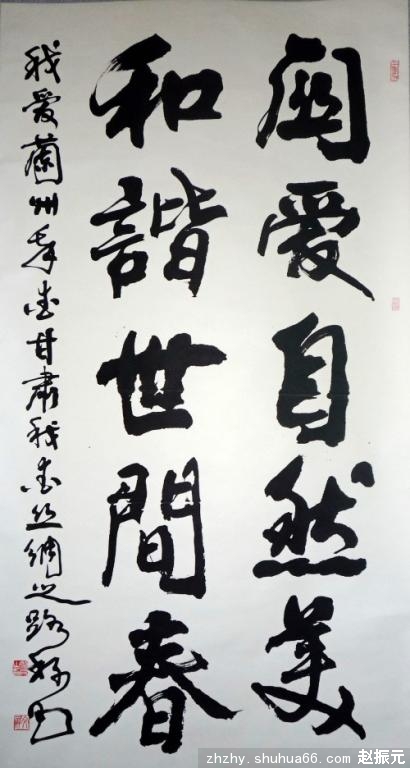 關爱自然美
和諧世間春
我爱蘭州我爱甘肅我爱丝綢之路
zhzhy.shuhua66.com 赵振元